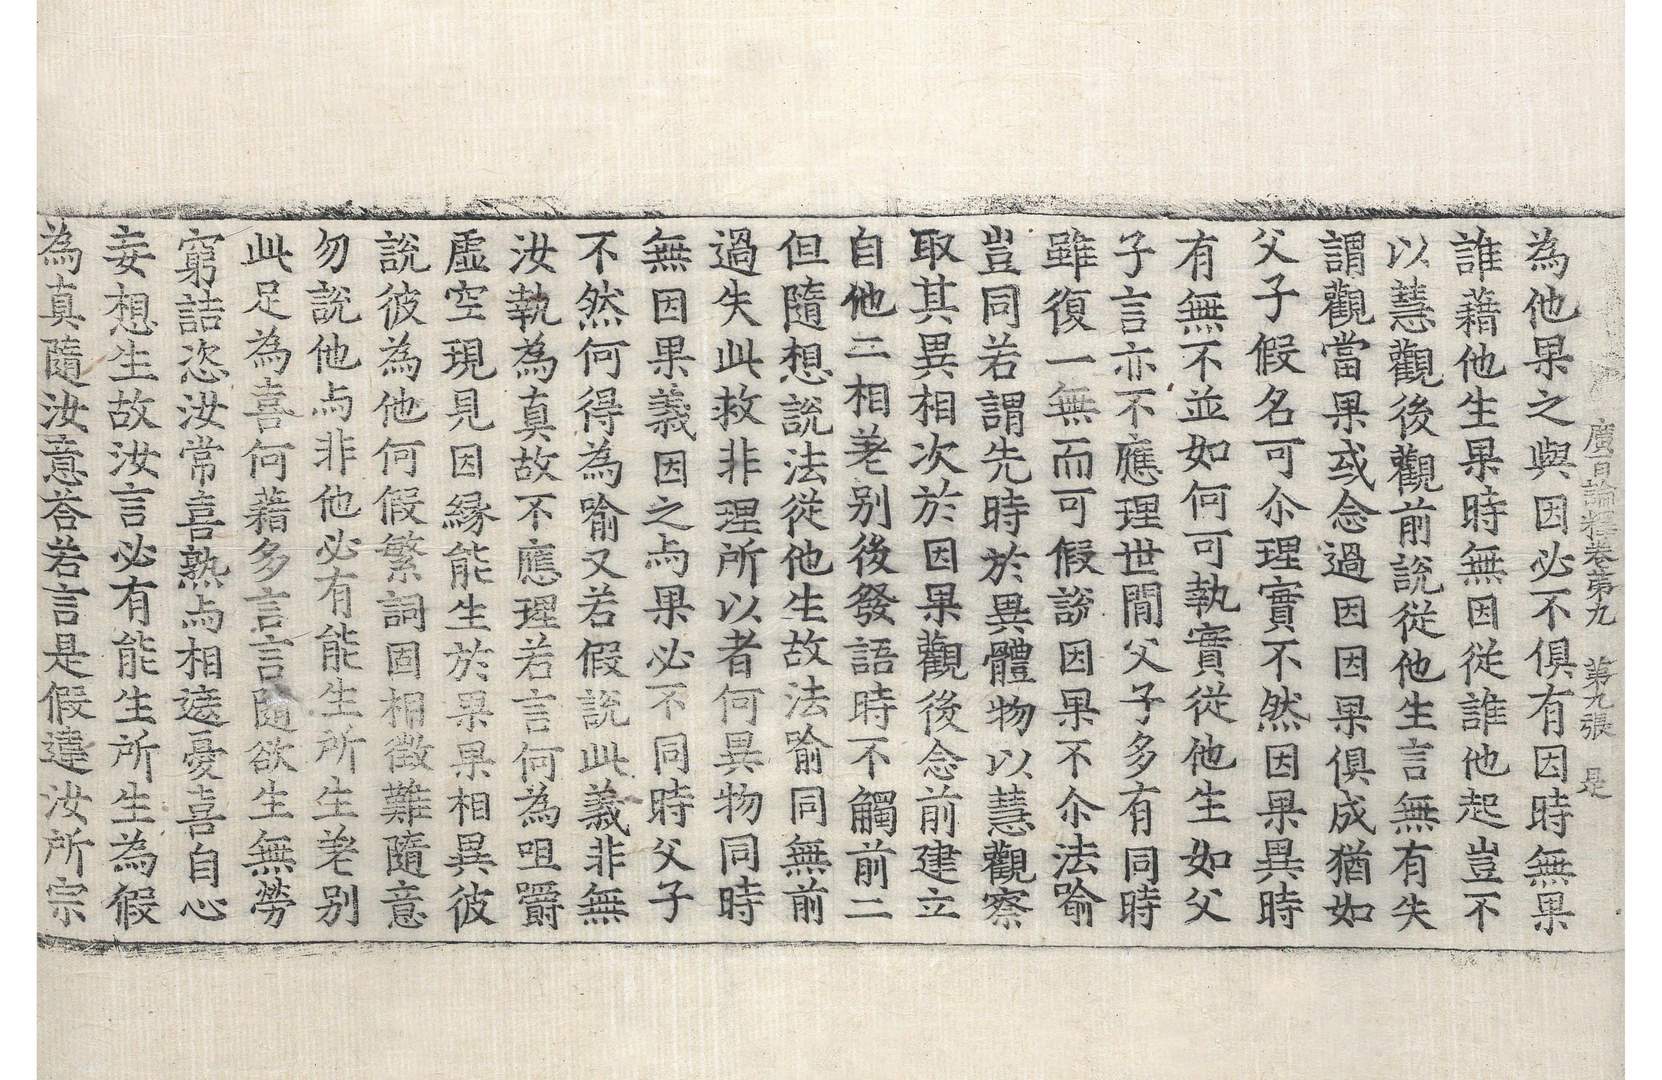 廣百論釋卷第九　第九張　是
為他果之與因必不俱有因時無果
誰藉他生果時無因從誰他起豈不
以慧觀後觀前說從他生言無有失
謂觀當果或念過因因果俱成猶如
父子假名可尒理實不然因果異時
有無不並如何可執實從他生如父
子言亦不應理世閒父子多有同時
雖復一無而可假說因果不尒法喻
豈同若謂先時於異體物以慧觀察
取其異相次於因果觀後念前建立
自他二相差别後發語時不觸前二
但隨想說法從他生故法喻同無前
過失此救非理所以者何異物同時
無因果義因之与果必不同時父子
不然何得為喻又若假說此義非無
汝執為真故不應理若言何為咀嚼
虛空現見因緣能生於果果相異彼
說彼為他何假繁詞固相徵難隨意
勿說他与非他必有能生所生差别
此足為喜何藉多言言隨欲生無勞
窮詰恣汝常喜熟与相違憂喜自心
妄想生故汝言必有能生所生為假
為真隨汝意荅若言是假違汝所宗